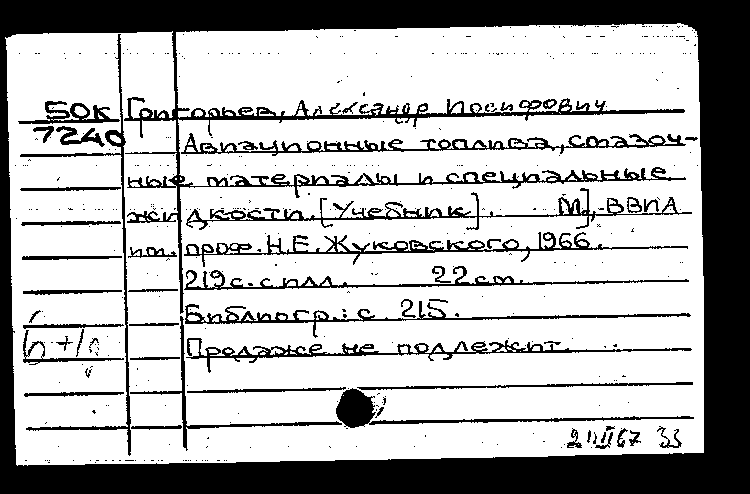 50К Григорьев, Александр Иосифович
7240 Авиационные топлива, смазоч-
ные материалы и специальные
жидкости. [Учебник]. М], ВВИА
им. проф. Н.Е. Жуковского, 1966.
219 с. с илл. 22 см.
Библиогр.: с 215.
Продаже не подлежит.